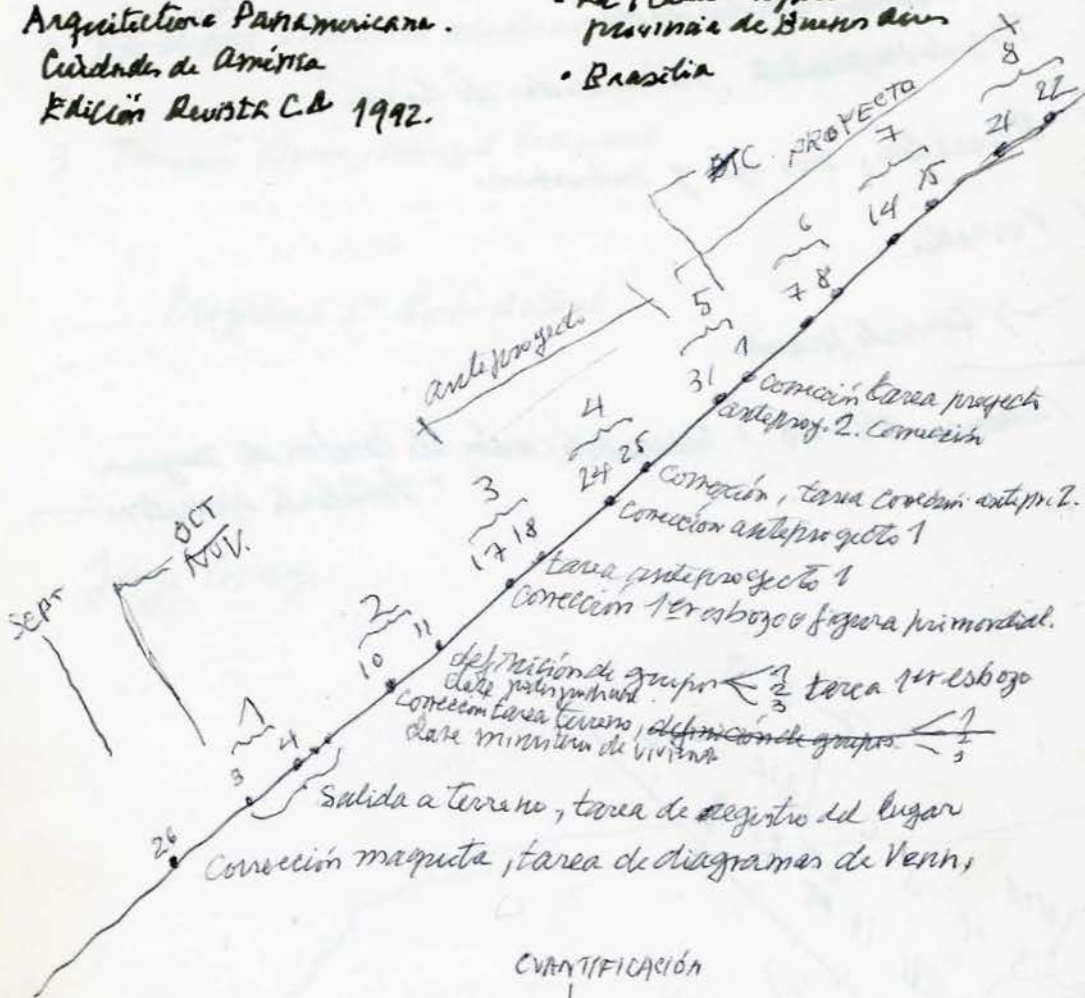 Arquitectura Panamericana.
Ciudades de América
Edición Revista CA 1992.
provincia de Buenos Aires
• Brasilia
8
21 22
PROYECTO
7
14 15
6
7 8
5
31 1
corrección tarea proyecto
anteproy. 2. corrección
anteproyecto
4
24 25
corrección, tarea corrección antepr. 2.
corrección anteproyecto 1
3
17 18
tarea anteproyecto 1
corrección 1er esbozo o figura primordial.
OCT
NOV.
Sept
2
10 11
definición de grupos < 1 2 3 tarea 1er esbozo
clase
corrección tarea terreno, definición de grupos < 1 2 3
clase ministerio de vivienda
1
3 4
Salida a terreno, tarea de registro del lugar
26
Corrección maqueta, tarea de diagramas de Venn,
CUANTIFICACIÓN